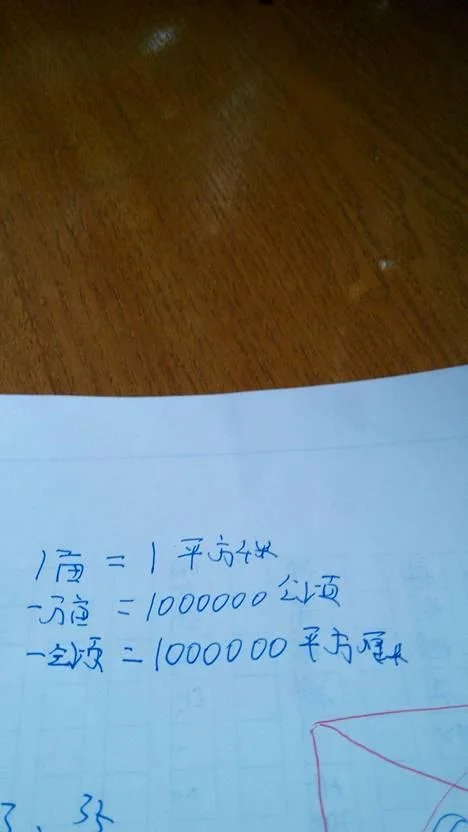 1亩 = 1 平方米
一万亩 = 1000000 公顷
一公顷 = 1000000 平方厘米
3、35